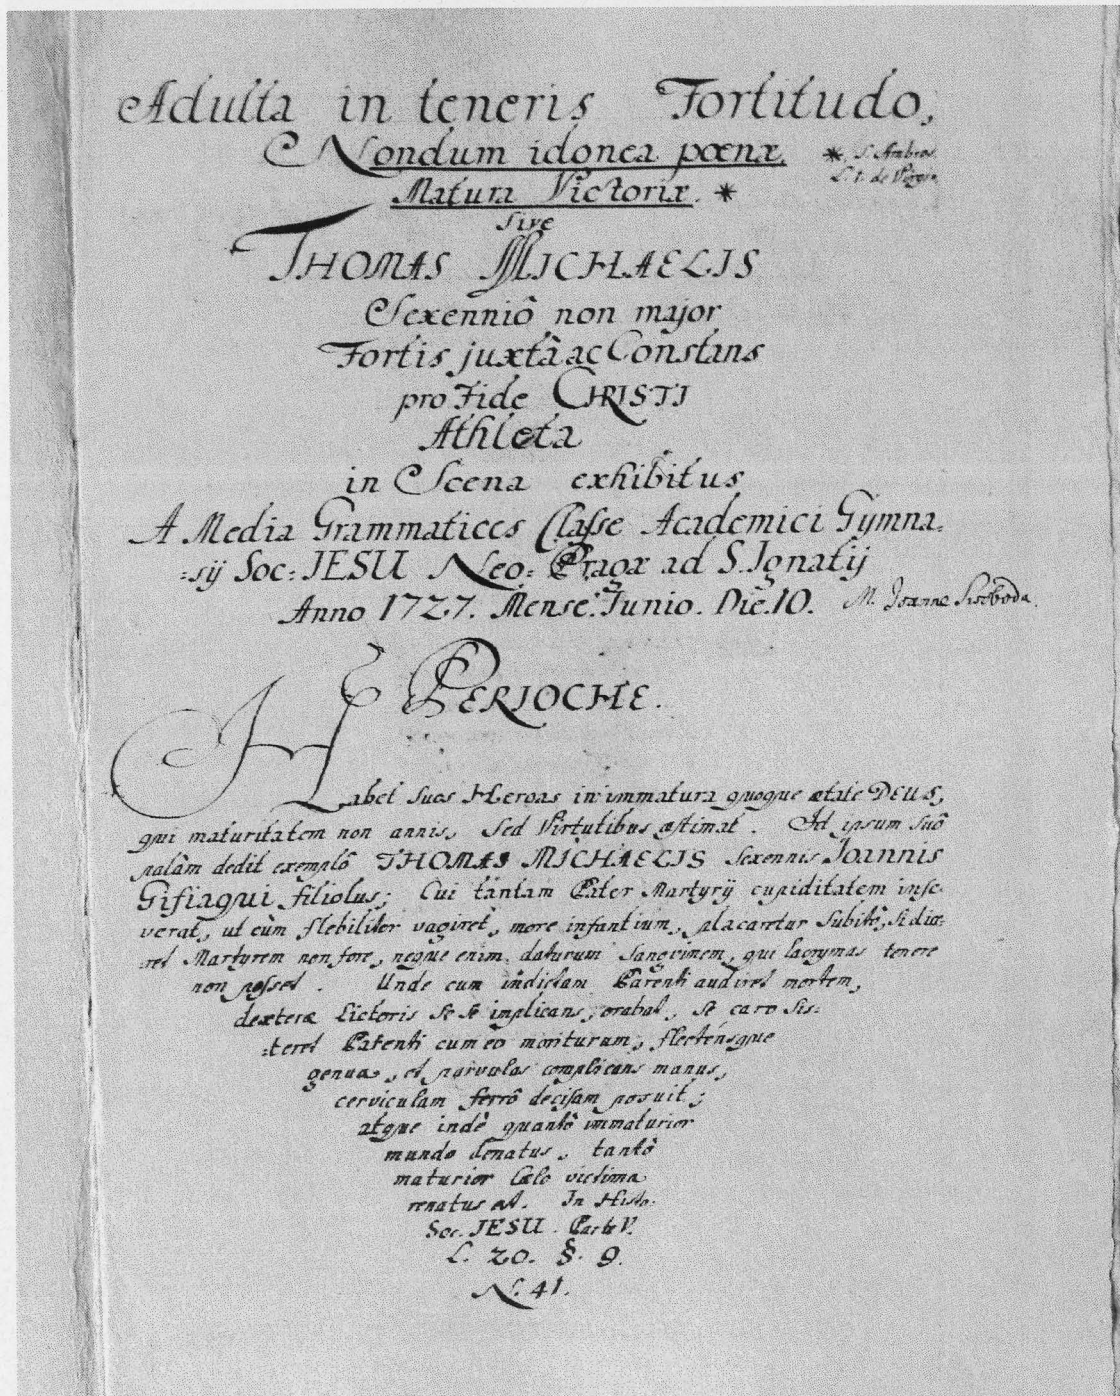 Adulta in teneris Fortitudo,
Nondum idonea pœnæ, * S. Ambros.
Matura Victoriæ. * L. 1. de Virgin.
Sive
THOMAS MICHAELIS
Sexenniô non major
Fortis juxtà ac Constans
pro Fide CHRISTI
Athleta
in Scena exhibitus
A Media Grammatices Classe Academici Gymna=
=sij Soc: JESU Neo= Pragæ ad S. Ignatij
Anno 1727. Mense. Junio. Die. 10. M. Joanne Swoboda.
PERIOCHE.
Habet suos Heroas in immatura quoque ætate DEUS,
qui maturitatem non annis, sed Virtutibus æstimat. Id ipsum suô
palàm dedit exemplô THOMAS MICHAELIS sexennis Joannis
Gifiaqui filiolus; Cui tantam Pater Martyrij cupiditatem inse-
verat, ut cùm flebiliter vagiret, more infantium, placaretur subitò, si dice=
=ret Martyrem non fore, neque enim daturum sanguinem, qui lacrymas tenere
non posset. Unde cum indictam Parenti audiret mortem,
dexteræ Lictoris se se implicans, orabat, se caro sis=
=teret Parenti cum eo moriturum, flectensque
genua, et parvulas complicans manus,
cerviculam ferrô decisam posuit;
atque indè quantò immaturior
mundo denatus, tantò
maturior Cælo victima
renatus est. In Histo.
Soc. JESU. Parte V.
L. 20. §. 9.
N. 41.